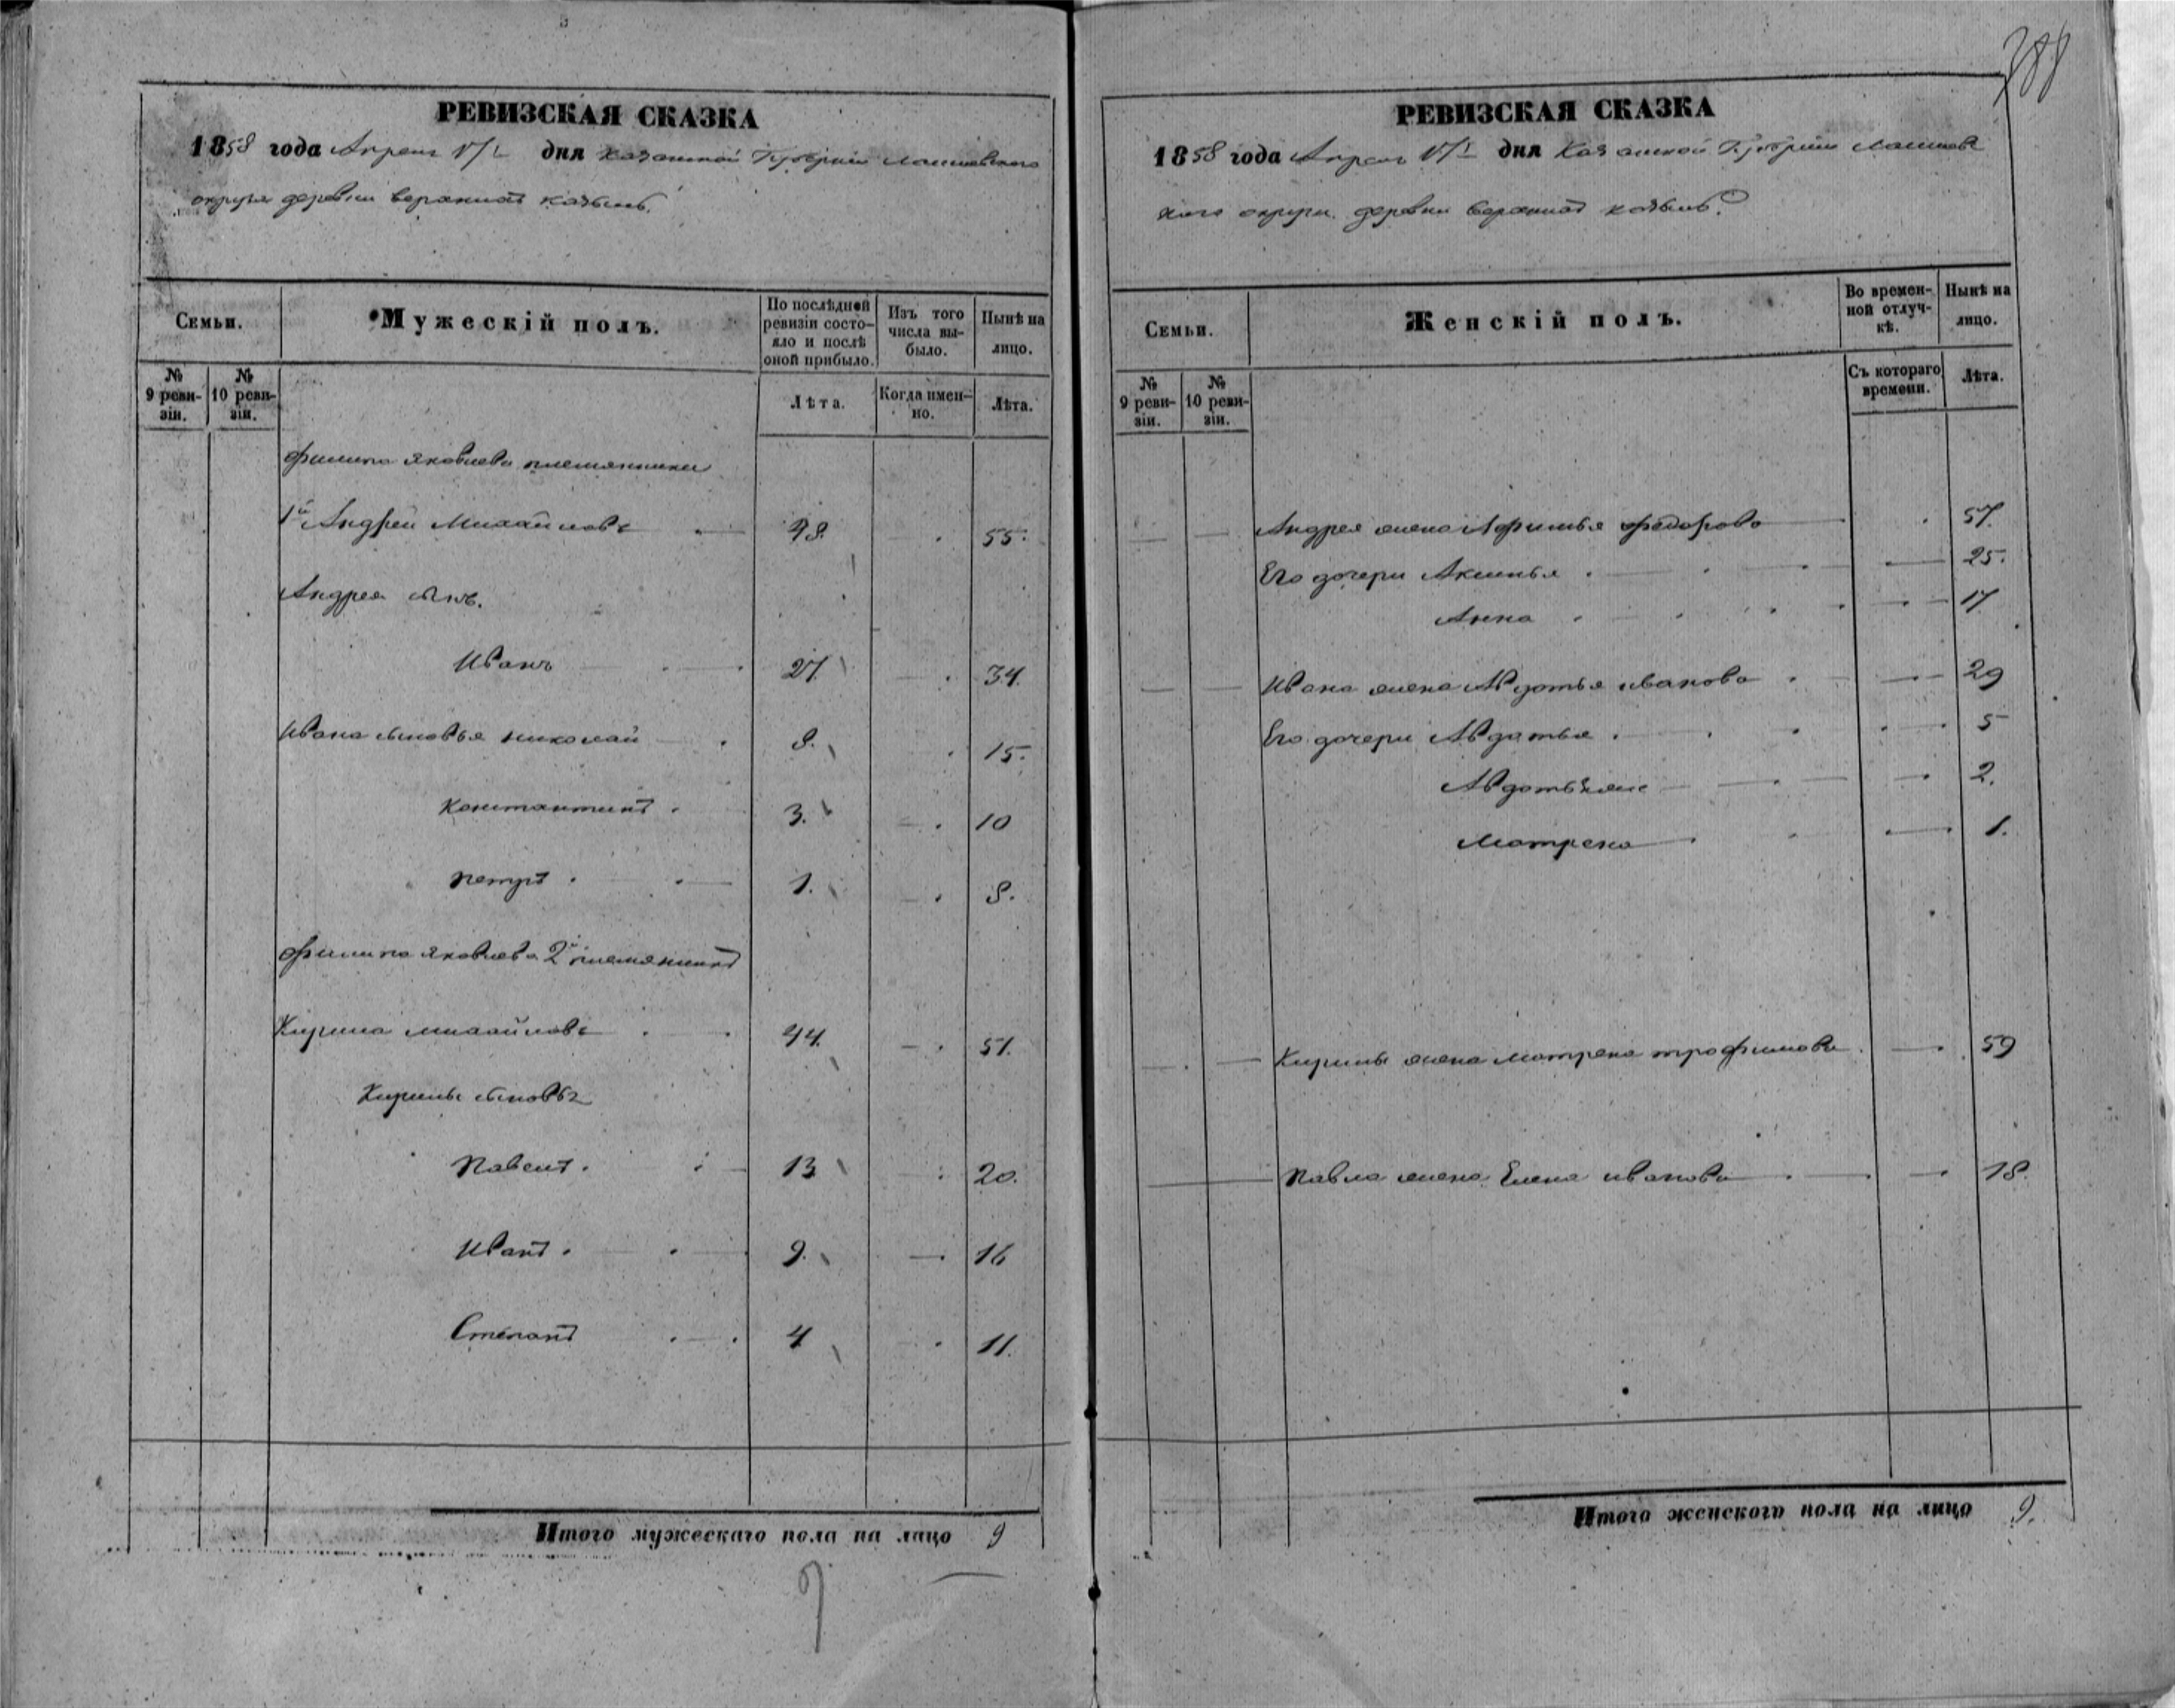 388
РЕВИЗСКАЯ СКАЗКА
1858 года Апреля дня Казанской Губернiи Лаишевского
округа деревни верхнот казыль
Семьи.
Мужескiй полъ.
По послѣдней ревизiи состояло и послѣ оной прибыло.
Изъ того числа выбыло.
Нынѣ на лицо.
№ 9 ревизiи.
№ 10 ревизiи.
Лѣта.
Когда именно.
Лѣта.
Филипа Яковлева племянники
1й Андрей Михайловъ 48. 55.
Андрея сынъ.
Иванъ 27. 34.
Ивана сыновья николай 8. 15.
Константинъ 3. 10
петръ 1. 8.
Филипа яковлева 2й племянникъ
Кирила михайловъ 44. 51.
Кирилы сыновья
Павелъ 13 20.
Иванъ 9. 16
Степанъ 4 11.
Итого мужескаго пола на лицо 9
9
РЕВИЗСКАЯ СКАЗКА
1858 года Апреля дня Казанской Губернiи Лаишевс
кого округа деревни верхнот казыль
Семьи.
Женскiй полъ.
Во временной отлучкѣ.
Нынѣ на лицо.
№ 9 ревизiи.
№ 10 ревизiи.
Съ котораго времени.
Лѣта.
Андрея жена Афимья федорова 57.
Его дочери Аксинья 25.
Анна 17
Ивана жена Авдотья иванова 29
Его дочери Авдотья 5
2.
Матрена 1.
Кирилы жена матрена трофимова 59
Павла жена Елена иванова 18.
Итого женского пола на лицо 9.